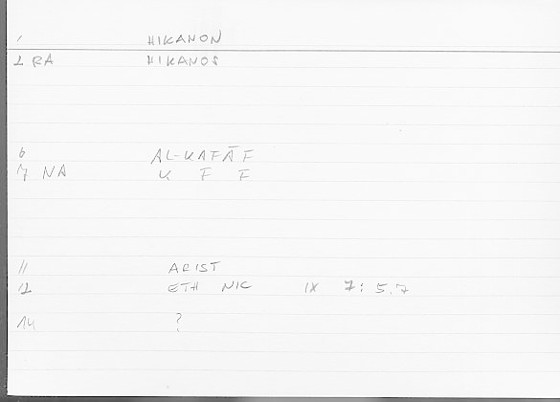 1 HIKANON
2 RA HIKANOS
6 AL-KAFĀF
7 NA K F F
11 ARIST
12 ETH NIC IX 7: 5.7
14 ?